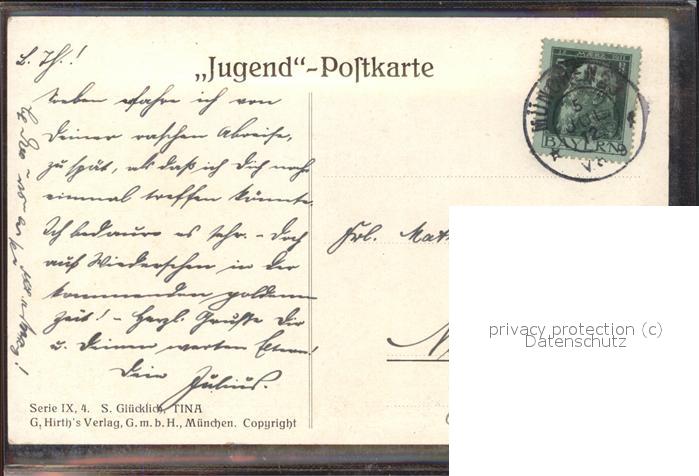 „Jugend“-Postkarte
L. Th.!
Soeben erfahre ich von
Deiner raschen Abreise,
zu spät, als daß ich Dich noch
einmal treffen könnte.
Ich bedaure es sehr. – Doch
auf Wiedersehen in der
kommenden goldenen
Zeit! – Herzl. Grüße Dir
u. Deinen werten Eltern!
Dein Julius.
Serie IX, 4. S. Glücklich, TINA
G. Hirth's Verlag, G. m. b. H., München. Copyright
12. MÄRZ 1911
5
MÜNCHEN
BAYERN
Frl.
privacy protection (c)
Datenschutz